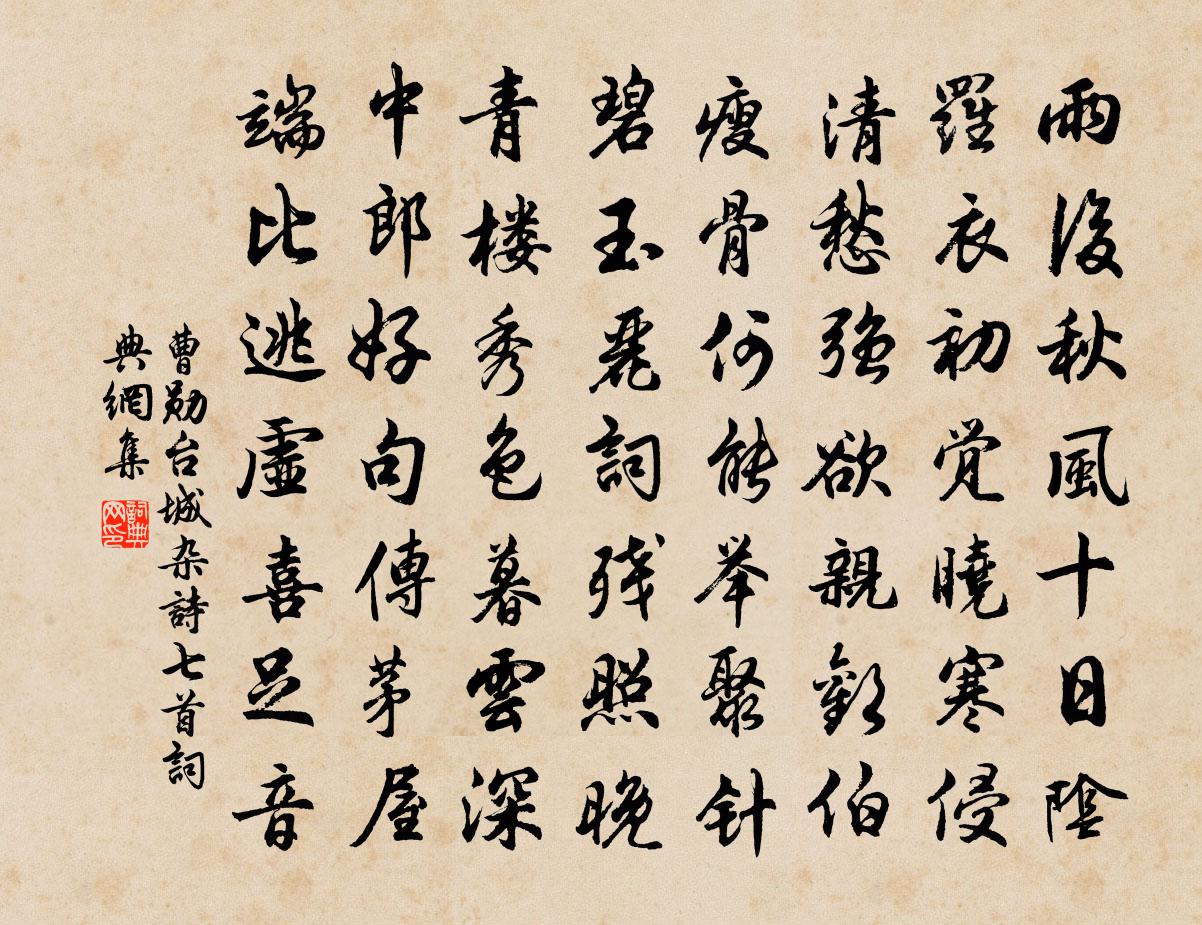 雨後秋風十日陰
羅衣初覚曉寒侵
清愁強欲親歡伯
瘦骨何能举聚针
碧玉麗詞残照晚
青楼秀色暮雲深
中郎好句傳茅屋
端比逃虛喜足音
曹勛台城杂詩七首詞
典網集
詞典
网印